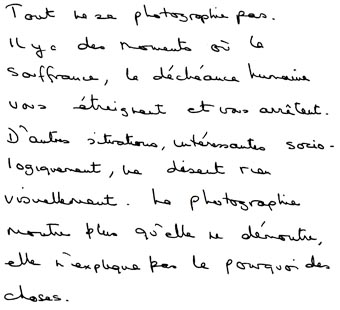 Tout ne se photographie pas.
Il y a des moments où la
souffrance, la déchéance humaine
vous étreignent et vous arrêtent.
D'autres situations, intéressantes socio-
logiquement, ne disent rien
visuellement. La photographie
montre plus qu'elle ne démontre,
elle n'explique pas le pourquoi des
choses.